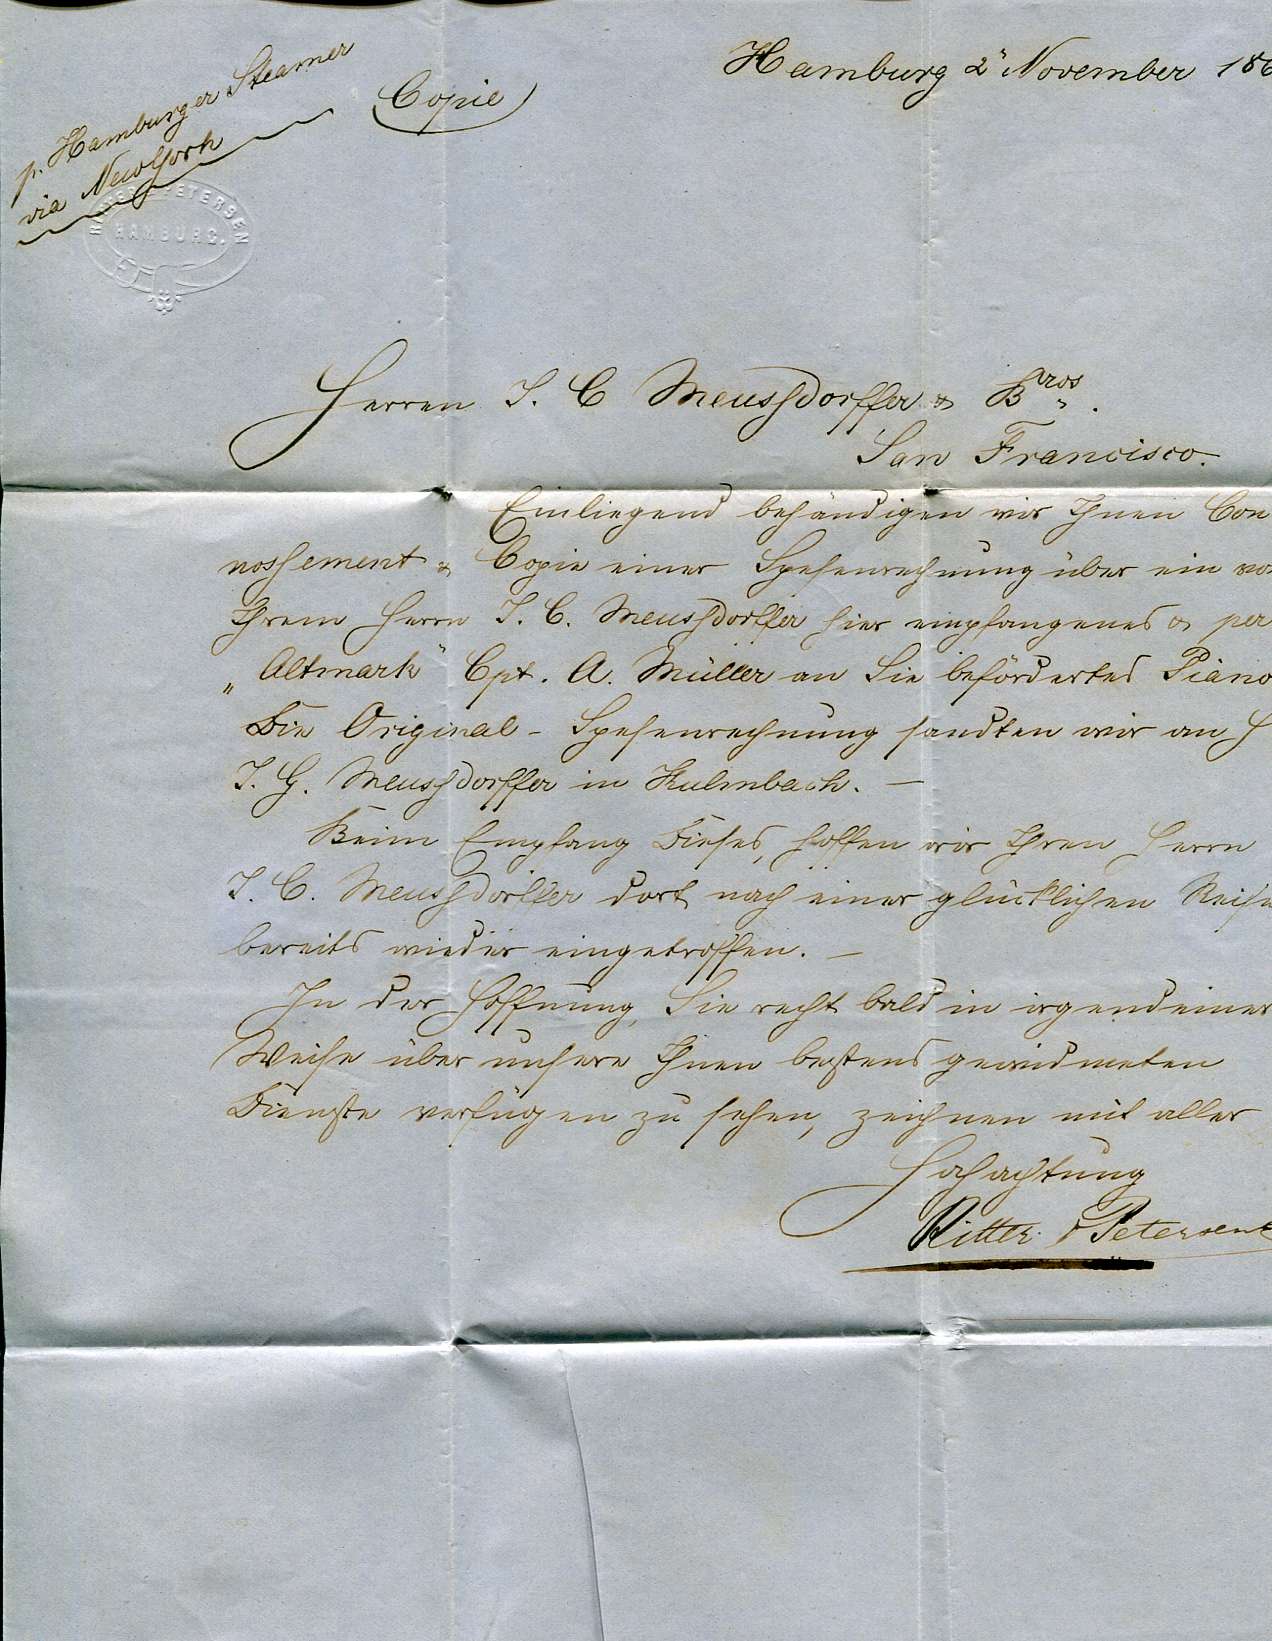 Hamburg 2" November 186
p. Hamburger Steamer
via NewYork
Copie
PETERSEN
HAMBURG.
Herren J. C Meussdorffer & Bros.
San Francisco.
Einliegend behändigen wir Ihnen Con
nossement & Copie einer Spesenrechnung über ein vo
Ihrem Herrn J. C. Meussdorffer hier empfangenes & per
„Altmark" Cpt. A. Müller an Sie befördertes Piano
Die Original-Spesenrechnung sandten wir an H
J. G. Meussdorffer in Kulmbach. —
Beim Empfang Dieses, hoffen wir Ihren Herrn
J. C. Meussdorffer dort nach einer glücklichen Reise
bereits wieder eingetroffen. —
In der Hoffnung, Sie recht bald in irgendeiner
Weise über unsere Ihnen bestens gewidmeten
Dienste verfügen zu sehen, zeichnen mit aller
Hochachtung
Ritter & Petersen